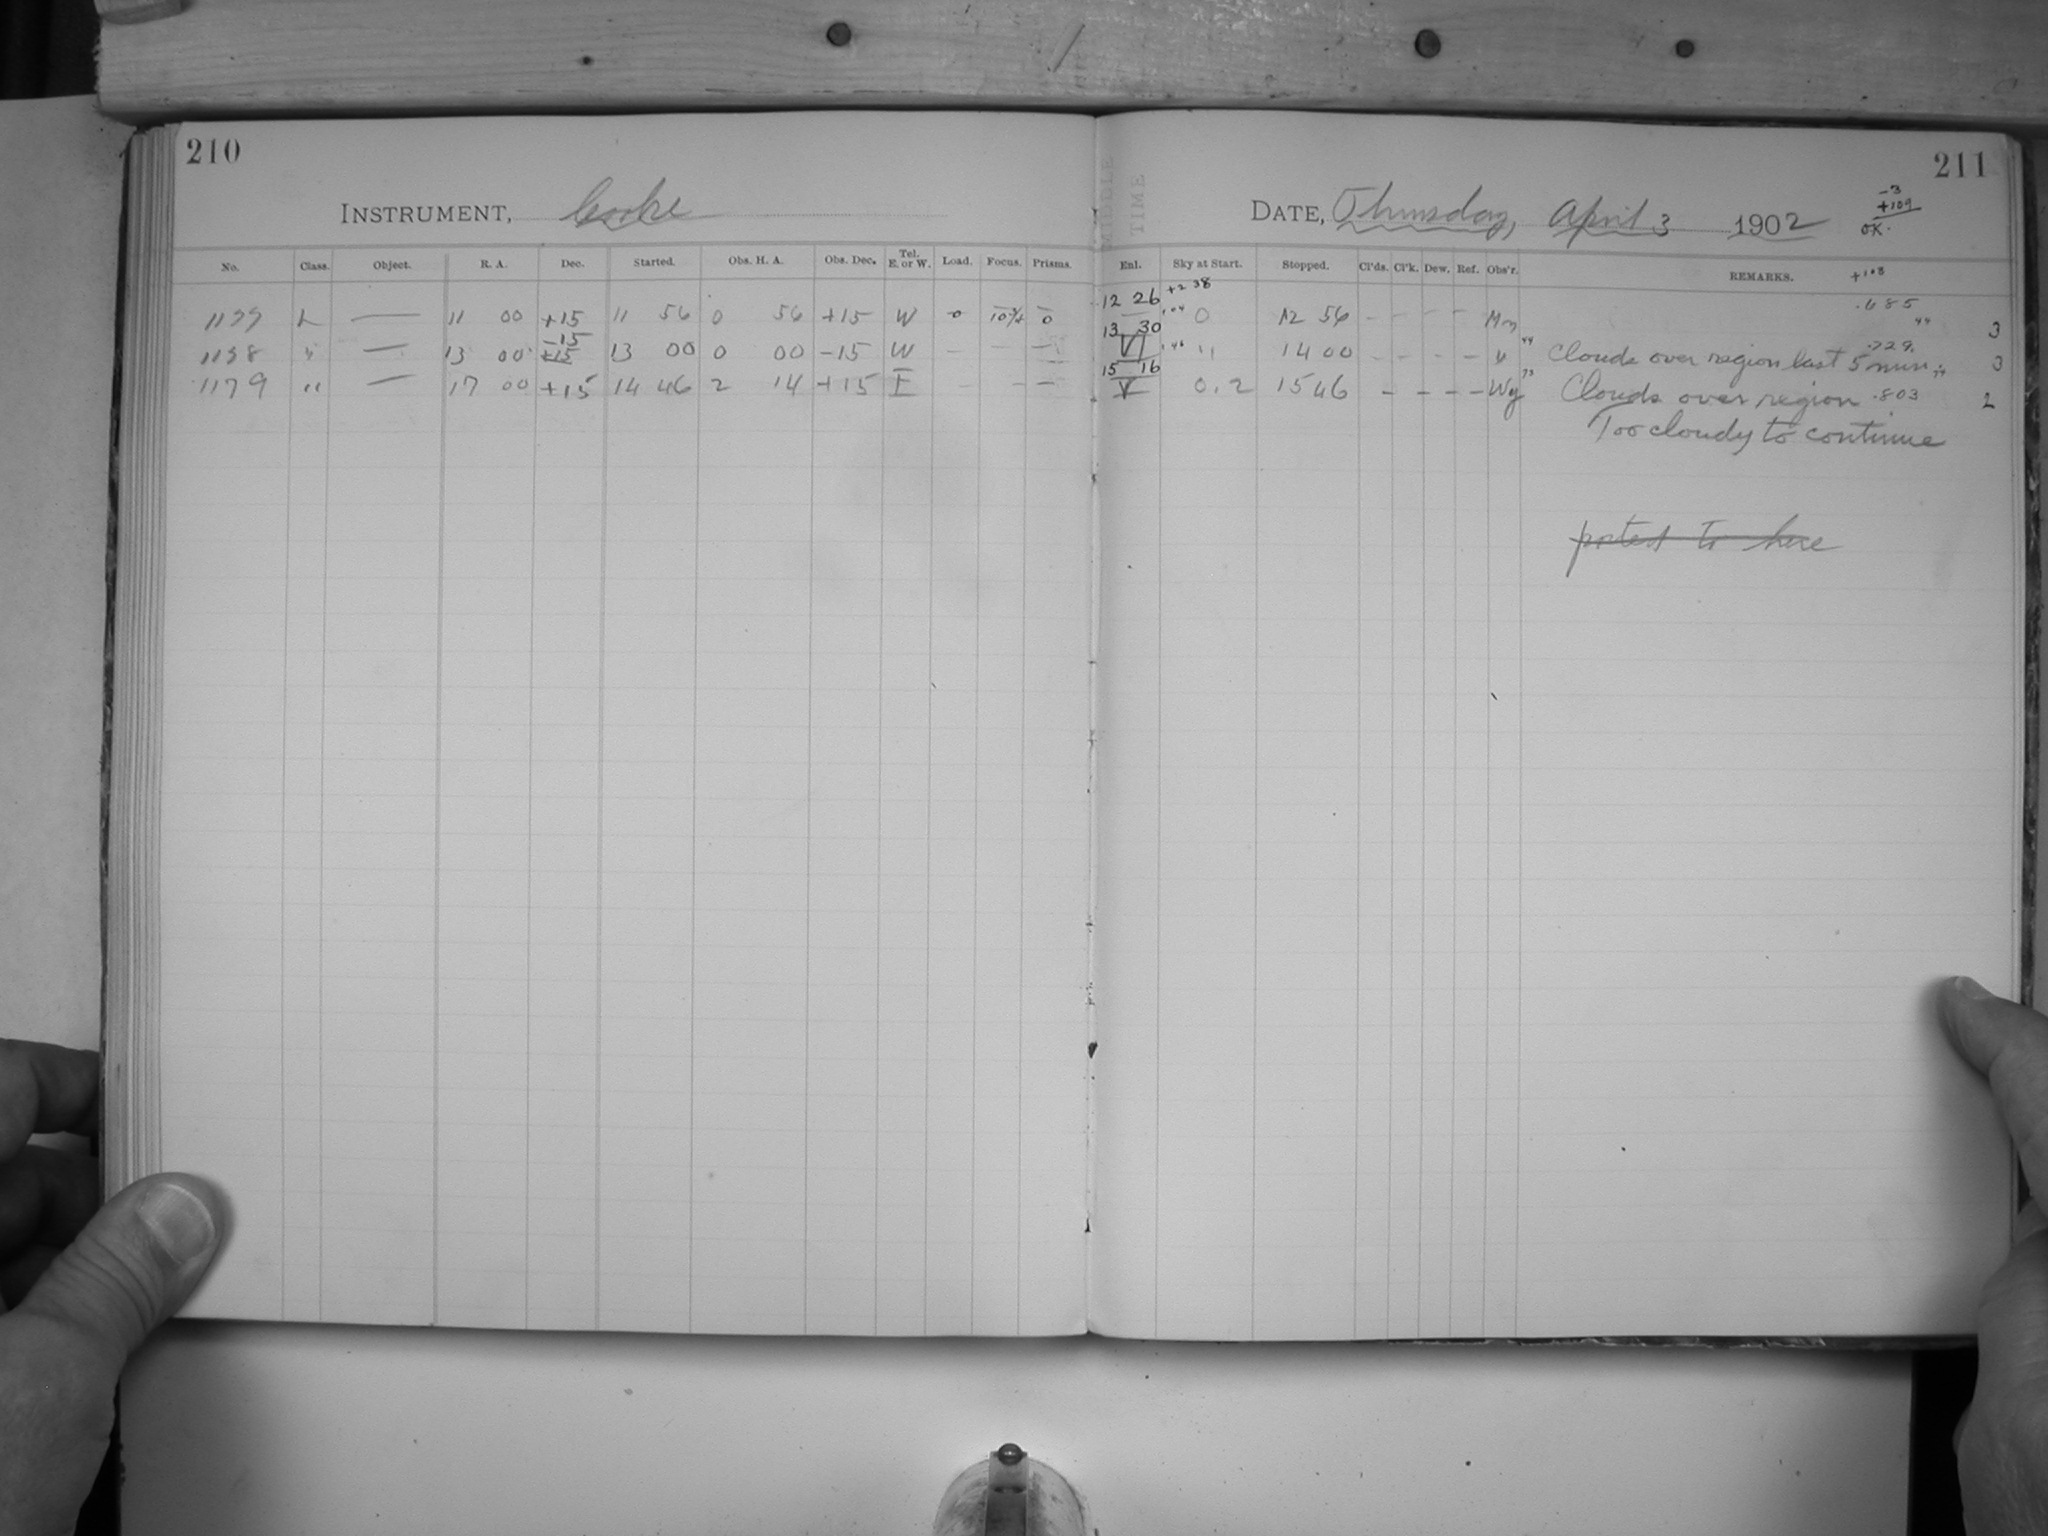 210
INSTRUMENT, Cooke
No. Class. Object. R. A. Dec. Started. Obs. H. A. Obs. Dec. Tel. E. or W. Load. Focus. Prisms.
L — 11 00 +15 11 56 0 56 +15 W 0 0
-15
" — 13 00 +15 13 00 0 00 -15 W — — —
1179 " — 17 00 +15 14 46 2 14 +15 E — — —
211
MIDDLE TIME
DATE, Thursday, April 3 1902
-3
+109
OK.
Enl. Sky at Start. Stopped. Cl'ds. Cl'k. Dew. Ref. Obs'r. REMARKS. +108
12 26 +2 38 .685
.04 0 12 56 - - - - 44 3
13 30 .729
V .46 " 14 00 - - - - " 44 Clouds over region last 5 min. 3
15 16
V 0.2 15 46 - - - - Wg 73 Clouds over region .803 2
Too cloudy to continue
posted to here